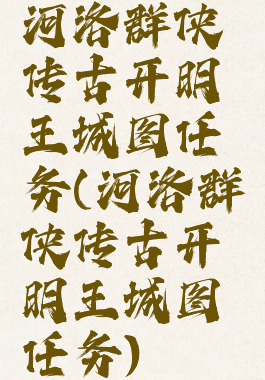 河洛群侠
传古开明
王城图任
务(河洛群
侠传古开
明王城图
任务)